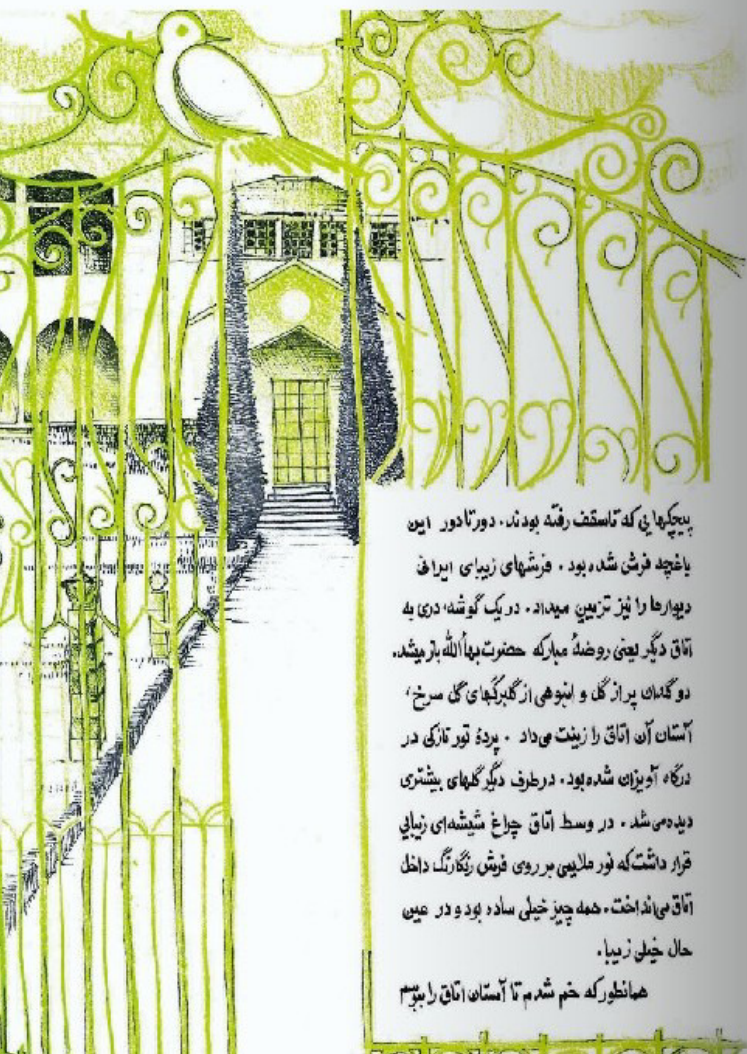 پیچکهایی که تاسقف رفته بودند. دورتادور این
باغچه فرش شده بود. فرشهای زیبای ایرانی
دیوارها را نیز تزیین میداد. در یک گوشه، دری به
اتاق دیگر یعنی روضهٔ مبارکه حضرت بهاءالله باز میشد.
دو گلدان پر از گل و انبوهی از گلبرگهای گل سرخ،
آستان آن اتاق را زینت می‌داد. پردهٔ تور نازکی در
درگاه آویزان شده بود. در طرف دیگر گلهای بیشتری
دیده می شد. در وسط اتاق چراغ شیشه‌ای زیبایی
قرار داشت که نور ملایمی بر روی فرش رنگارنگ داخل
اتاق می‌انداخت. همه چیز خیلی ساده بود و در عین
حال خیلی زیبا.
همانطور که خم شدم تا آستان اتاق را ببوسم